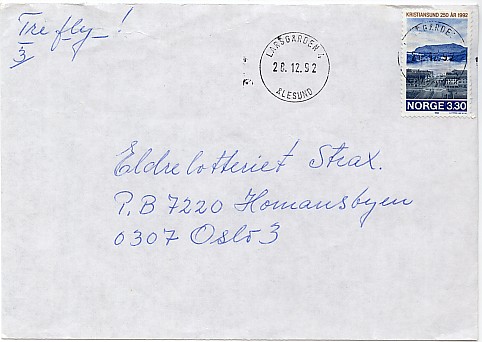 Tre fly_!
3
LARSGÅRDEN
28.12.92
ÅLESUND
KRISTIANSUND 250 ÅR 1992
NORGE 3.30
Eldrelotteriet Strax.
P.B 7220 Homansbyen
0307 Oslo 3